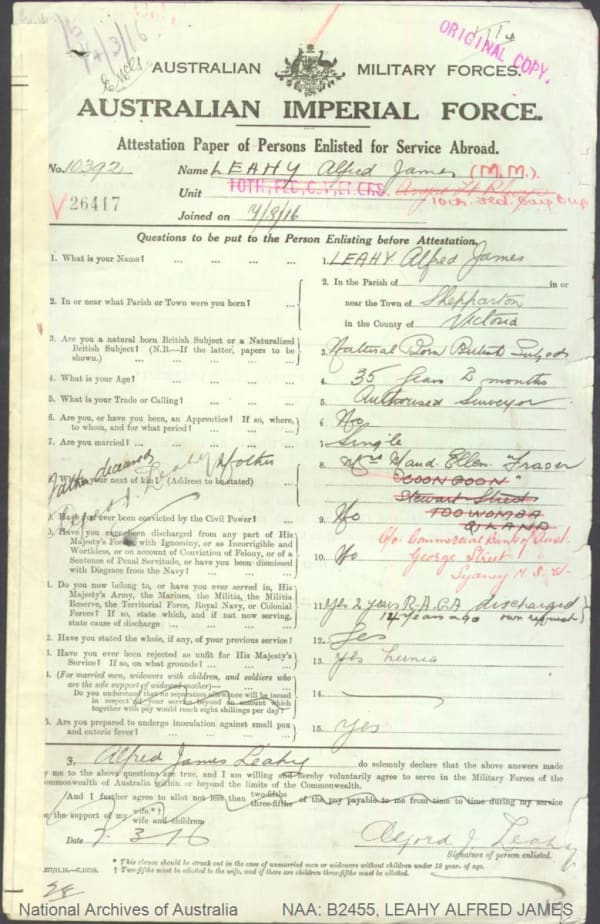 ORIGINAL COPY.
7/3/16
AUSTRALIAN MILITARY FORCES.
AUSTRALIAN IMPERIAL FORCE.
Attestation Paper of Persons Enlisted for Service Abroad.
No. 10392 Name LEAHY Alfred James (M.M.).
Unit 10TH. FLD. COY. ENGRS.
10th. Fld. Coy. Eng
V 26417
Joined on 7/3/16
Questions to be put to the Person Enlisting before Attestation.
1. What is your Name? ... 1. LEAHY Alfred James
2. In or near what Parish or Town were you born? ... 2. In the Parish of in or
near the Town of Shepparton
in the County of Victoria
3. Are you a natural born British Subject or a Naturalized
British Subject? (N.B.—If the latter, papers to be
shown,) ... 3. Natural Born British Subject
4. What is your Age? ... 4. 35 Years 2 months
5. What is your Trade or Calling? ... 5. Authorised Surveyor
6. Are you, or have you been, an Apprentice? If so, where,
to whom, and for what period? ... 6. No
7. Are you married? ... 7. Single
8. Who is your next of kin? (Address to be stated) ... 8. Mrs Maud Ellen Fraser
Father deceased
Leahy Mother
"COONGOON"
Stewart Street
TOOWOMBA
Q'LAND
C/o Commercial Bank of Aust.
George Street
Sydney N. S. W.
9. Have you ever been convicted by the Civil Power? ... 9. No
0. Have you ever been discharged from any part of His
Majesty's Forces, with Ignominy, or as Incorrigible and
Worthless, or on account of Conviction of Felony, or of a
Sentence of Penal Servitude, or have you been dismissed
with Disgrace from the Navy? ... 10. No
1. Do you now belong to, or have you ever served in, His
Majesty's Army, the Marines, the Militia, the Militia
Reserve, the Territorial Force, Royal Navy, or Colonial
Forces? If so, state which, and if not now serving,
state cause of discharge ... 11. Yes 2 years R.A.G.A discharged
14 years ago own request
2. Have you stated the whole, if any, of your previous service? 12. Yes
3. Have you ever been rejected as unfit for His Majesty's
Service? If so, on what grounds? ... 13. Yes hernia
4. (For married men, widowers with children, and soldiers who
are the sole support of widowed mother)—
Do you understand that no separation allowance will be issued
in respect of your service beyond an amount which
together with pay would reach eight shillings per day? 14.
5. Are you prepared to undergo inoculation against small pox
and enteric fever? ... 15. Yes
3, Alfred James Leahy do solemnly declare that the above answers made
y me to the above questions are true, and I am willing and hereby voluntarily agree to serve in the Military Forces of the
ommonwealth of Australia within or beyond the limits of the Commonwealth.
And I further agree to allot not less than two-fifths three-fifths of the pay payable to me from time to time during my service
or the support of my wife.*†
wife and children
Date 7. 3 16 Alfred J. Leahy
Signature of person enlisted.
* This clause should be struck out in the case of unmarried men or widowers without children under 18 years of age.
† Two-fifths must be allotted to the wife, and if there are children three-fifths must be allotted.
National Archives of Australia NAA: B2455, LEAHY ALFRED JAMES